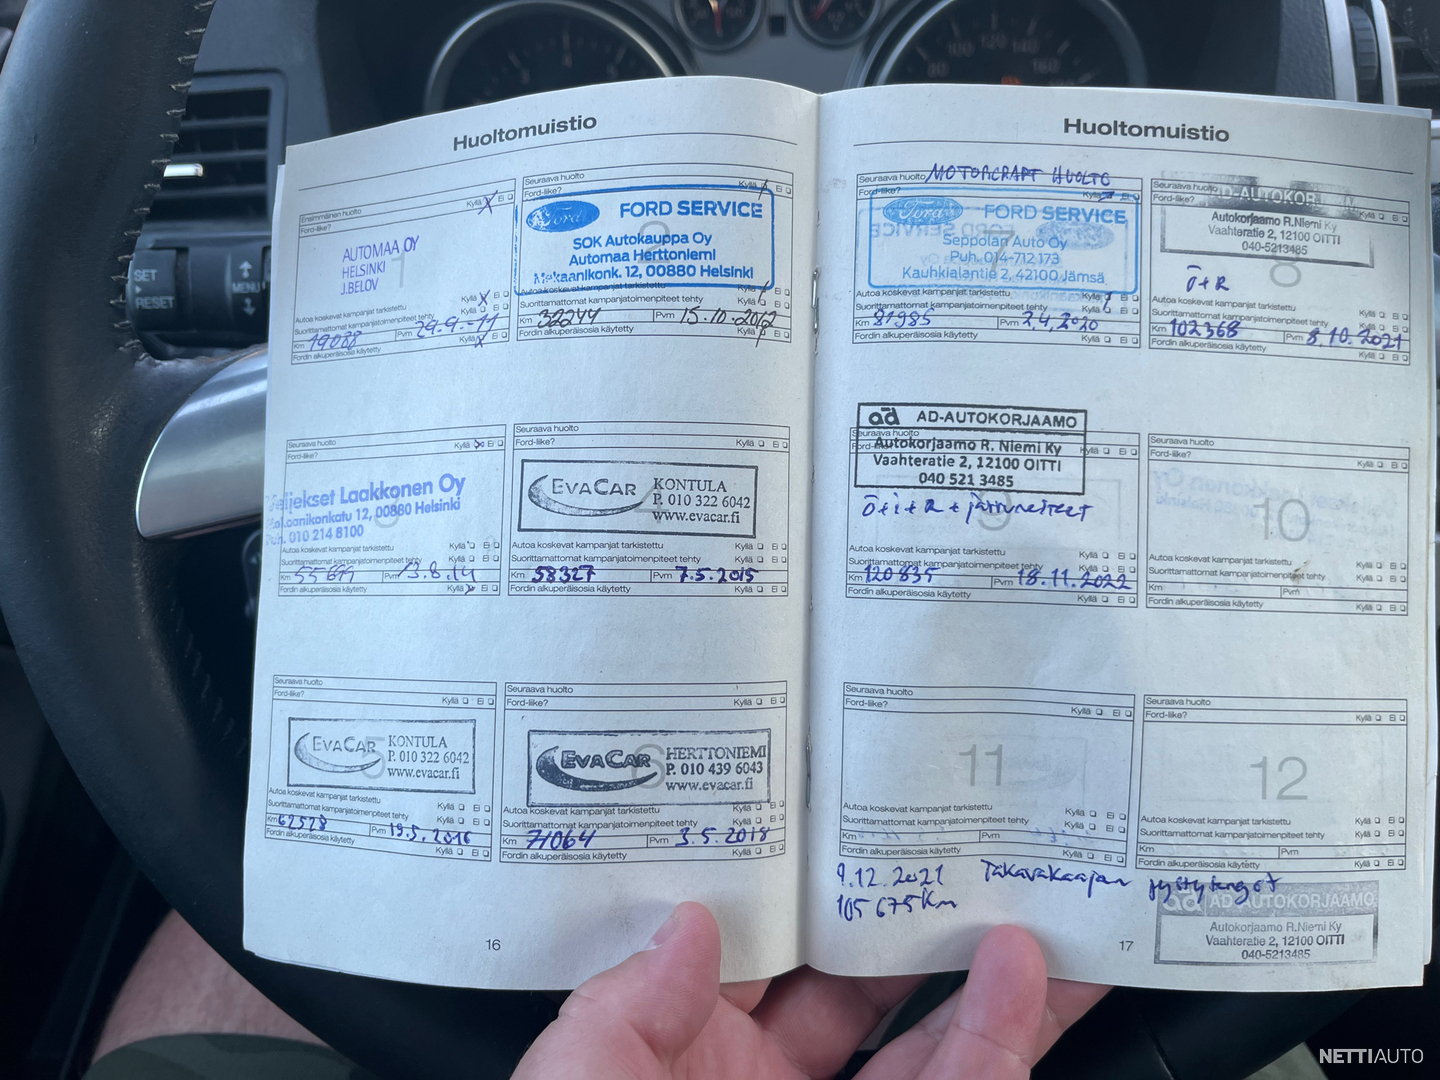 Huoltomuistio
Ensimmäinen huolto
Ford-liike?
Kyllä Ei
AUTOMAA OY
HELSINKI
J.BELOV
1
Autoa koskevat kampanjat tarkistettu
Kyllä Ei
Suorittamattomat kampanjatoimenpiteet tehty
Km 19088 Pvm 29.9.-11
Fordin alkuperäisosia käytetty Kyllä Ei
Seuraava huolto
Ford-liike? Kyllä Ei
Ford FORD SERVICE
2
SOK Autokauppa Oy
Automaa Herttoniemi
Mekaanikonk. 12, 00880 Helsinki
Autoa koskevat kampanjat tarkistettu
Suorittamattomat kampanjatoimenpiteet tehty Kyllä Ei
Km 32244 Pvm 15.10.2012
Fordin alkuperäisosia käytetty Kyllä Ei
Seuraava huolto
Ford-liike? Kyllä Ei
Veljekset Laakkonen Oy
Mekaanikonkatu 12, 00880 Helsinki
3
Puh. 010 214 8100
Autoa koskevat kampanjat tarkistettu Kyllä Ei
Suorittamattomat kampanjatoimenpiteet tehty Kyllä Ei
Km 55699 Pvm 13.8.14
Fordin alkuperäisosia käytetty Kyllä Ei
Seuraava huolto
Ford-liike? Kyllä Ei
EVACAR KONTULA
P. 010 322 6042
www.evacar.fi
4
Autoa koskevat kampanjat tarkistettu Kyllä Ei
Suorittamattomat kampanjatoimenpiteet tehty Kyllä Ei
Km 58327 Pvm 7.5.2015
Fordin alkuperäisosia käytetty Kyllä Ei
Seuraava huolto
Ford-liike? Kyllä Ei
EVACAR KONTULA
P. 010 322 6042
www.evacar.fi
5
Autoa koskevat kampanjat tarkistettu
Suorittamattomat kampanjatoimenpiteet tehty Kyllä Ei
Km 62528 Pvm 19.5.2016
Fordin alkuperäisosia käytetty Kyllä Ei
Seuraava huolto
Ford-liike? Kyllä Ei
EVACAR HERTTONIEMI
P. 010 439 6043
www.evacar.fi
6
Autoa koskevat kampanjat tarkistettu Kyllä Ei
Suorittamattomat kampanjatoimenpiteet tehty Kyllä Ei
Km 71064 Pvm 3.5.2018
Fordin alkuperäisosia käytetty Kyllä Ei
16
Huoltomuistio
Seuraava huolto MOTORCRAFT HUOLTO
Ford-liike? Kyllä Ei
Ford FORD SERVICE
7
Seppolan Auto Oy
Puh. 014-712 173
Kauhkialantie 2, 42100 Jämsä
Autoa koskevat kampanjat tarkistettu
Suorittamattomat kampanjatoimenpiteet tehty Kyllä Ei
Km 81985 Pvm 2.4.2020
Fordin alkuperäisosia käytetty Kyllä Ei
Seuraava huolto
AD-AUTOKORJ
Ford-liike? Kyllä Ei
Autokorjaamo R.Niemi Ky
Vaahteratie 2, 12100 OITTI
040-5213485
8
Ö+R
Autoa koskevat kampanjat tarkistettu Kyllä Ei
Suorittamattomat kampanjatoimenpiteet tehty Kyllä Ei
Km 102368 Pvm 8.10.2021
Fordin alkuperäisosia käytetty Kyllä Ei
ad AD-AUTOKORJAAMO
Seuraava huolto
Autokorjaamo R. Niemi Ky
Vaahteratie 2, 12100 OITTI
040 521 3485
9
Ö+i+R+jarrunesteet
Autoa koskevat kampanjat tarkistettu Kyllä Ei
Suorittamattomat kampanjatoimenpiteet tehty Kyllä Ei
Km 120835 Pvm 18.11.2022
Fordin alkuperäisosia käytetty Kyllä Ei
Seuraava huolto
Ford-liike? Kyllä Ei
10
Autoa koskevat kampanjat tarkistettu Kyllä Ei
Suorittamattomat kampanjatoimenpiteet tehty Kyllä Ei
Km Pvm
Fordin alkuperäisosia käytetty Kyllä Ei
Seuraava huolto
Ford-liike? Kyllä Ei
11
Autoa koskevat kampanjat tarkistettu Kyllä Ei
Suorittamattomat kampanjatoimenpiteet tehty Kyllä Ei
Km Pvm
Fordin alkuperäisosia käytetty Kyllä Ei
Seuraava huolto
Ford-liike? Kyllä Ei
12
Autoa koskevat kampanjat tarkistettu Kyllä Ei
Suorittamattomat kampanjatoimenpiteet tehty Kyllä Ei
Km Pvm
Fordin alkuperäisosia käytetty Kyllä Ei
9.12.2021 Takavakaajan pystytangot
105 675 Km
ad AD-AUTOKORJAAMO
Autokorjaamo R.Niemi Ky
Vaahteratie 2, 12100 OITTI
040-5213485
17
SET
RESET
MENU
80 100 120 140 160
NETTIAUTO